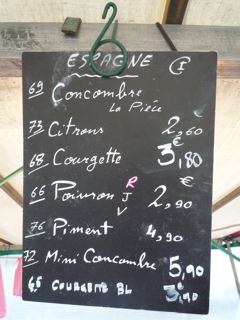 ESPAGNE I
69 Concombre
La Pièce
73 Citrons 2,60 €
68 Courgette 3,80 €
66 Poivron J R V 2,90 €
76 Piment 4,90
72 Mini Concombre 5,90
COURGETTE BL 3,90